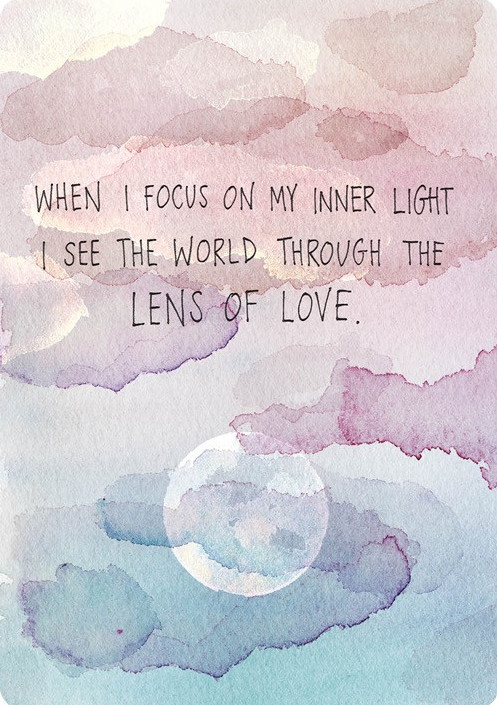 WHEN I FOCUS ON MY INNER LIGHT
I SEE THE WORLD THROUGH THE
LENS OF LOVE.